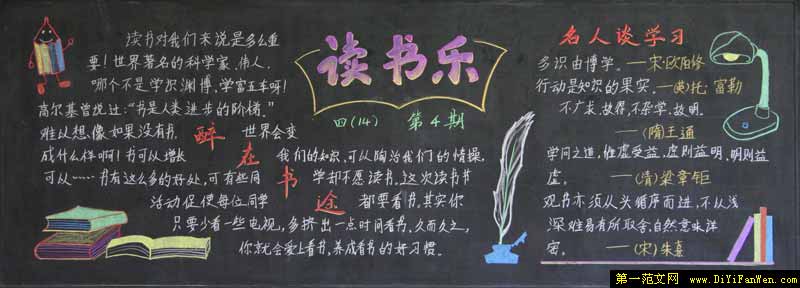 读书乐
四(14) 第4期
读书对我们来说是多么重
要！世界著名的科学家、伟人，
哪个不是学识渊博，学富五车呀！
高尔基曾说过：“书是人类进步的阶梯。”
难以想像如果没有书， 世界会变
成什么样啊！书可以增长 我们的知识，可以陶冶我们的情操，
可以……书有这么多的好处，可有些同 学却不愿读书，这次读书节
活动促使每位同学 都要看书，其实你
只要少看一些电视，多挤出一点时间看书，久而久之，
你就会爱上看书，养成看书的好习惯。
醉
在
书
途
名人谈学习
多识由博学。——宋·欧阳修
行动是知识的果实。——(英)托·富勒
不广求，故得，不杂学，故明。
——(隋)王通
学问之道，惟虚受益，虚则益明，明则益
虚。 ——(清)梁章钜
观书亦须从头循序而进，不以浅
深难易有所取舍，自然意味详
密。 ——(宋)朱熹
第一范文网 www.DiYiFanWen.com